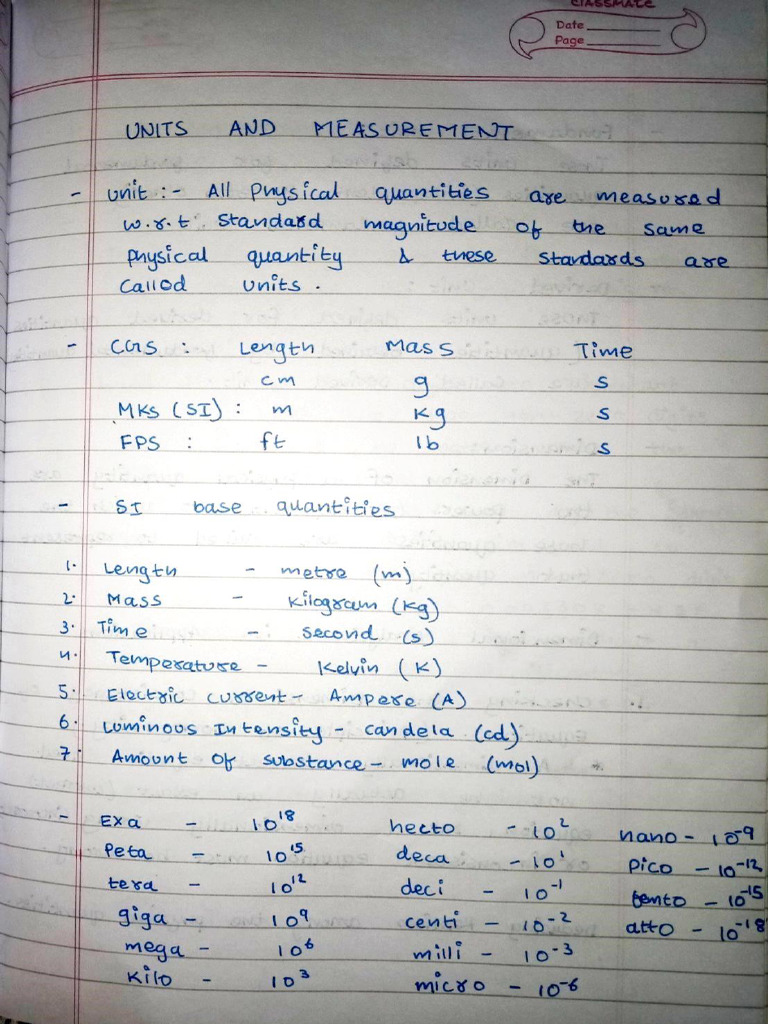 CLASSMATE
Date
Page
UNITS AND MEASUREMENT
- Unit :- All Physical quantities are measured
w.r.t. standard magnitude of the same
physical quantity & these standards are
called units.
- CGS : Length Mass Time
cm g s
MKS (SI) : m kg s
FPS : ft lb s
- SI base quantities
1. Length - metre (m)
2. Mass - Kilogram (Kg)
3. Time - second (s)
4. Temperature - Kelvin (K)
5. Electric current - Ampere (A)
6. Luminous Intensity - candela (cd)
7. Amount of substance - mole (mol)
- Exa - 10¹⁸ hecto - 10² nano - 10⁻⁹
Peta - 10¹⁵ deca - 10¹ pico - 10⁻¹²
tera - 10¹² deci - 10⁻¹ femto - 10⁻¹⁵
giga - 10⁹ centi - 10⁻² atto - 10⁻¹⁸
mega - 10⁶ milli - 10⁻³
Kilo - 10³ micro - 10⁻⁶